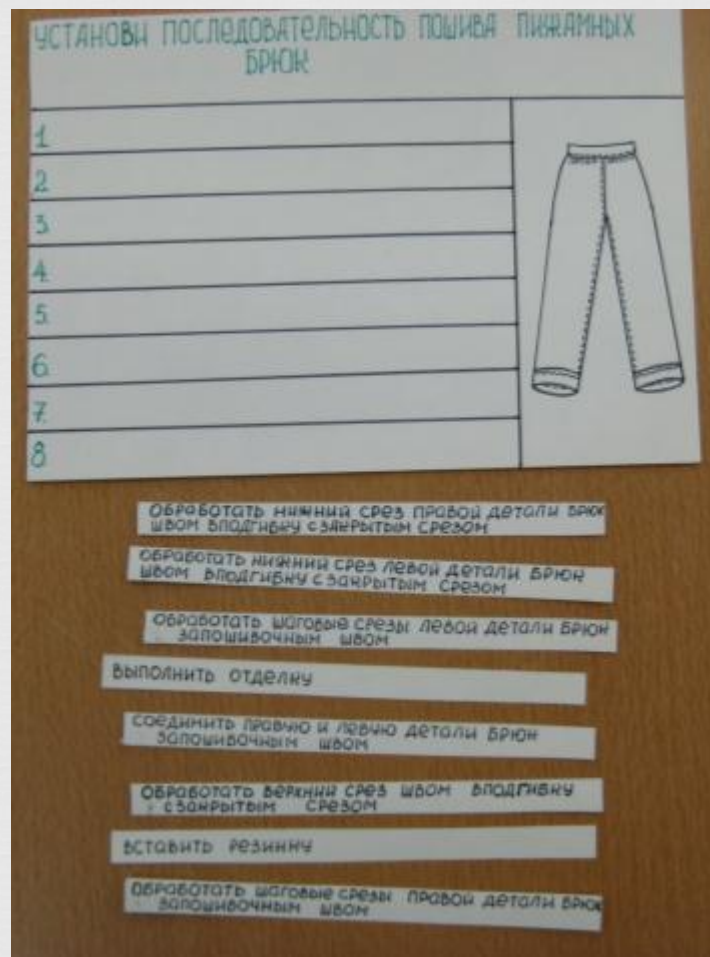 УСТАНОВИ ПОСЛЕДОВАТЕЛЬНОСТЬ ПОШИВА ПИЖАМНЫХ
БРЮК
1.
2.
3.
4.
5.
6.
7.
8
ОБРАБОТАТЬ НИЖНИЙ СРЕЗ ПРАВОЙ ДЕТАЛИ БРЮК
ШВОМ ВПОДГИБКУ С ЗАКРЫТЫМ СРЕЗОМ
ОБРАБОТАТЬ НИЖНИЙ СРЕЗ ЛЕВОЙ ДЕТАЛИ БРЮК
ШВОМ ВПОДГИБКУ С ЗАКРЫТЫМ СРЕЗОМ
ОБРАБОТАТЬ ШАГОВЫЕ СРЕЗЫ ЛЕВОЙ ДЕТАЛИ БРЮК
ЗАПОШИВОЧНЫМ ШВОМ
ВЫПОЛНИТЬ ОТДЕЛКУ
СОЕДИНИТЬ ПРАВУЮ И ЛЕВУЮ ДЕТАЛИ БРЮК
ЗАПОШИВОЧНЫМ ШВОМ
ОБРАБОТАТЬ ВЕРХНИЙ СРЕЗ ШВОМ ВПОДГИБКУ
С ЗАКРЫТЫМ СРЕЗОМ
ВСТАВИТЬ РЕЗИНКУ
ОБРАБОТАТЬ ШАГОВЫЕ СРЕЗЫ ПРАВОЙ ДЕТАЛИ БРЮК
ЗАПОШИВОЧНЫМ ШВОМ